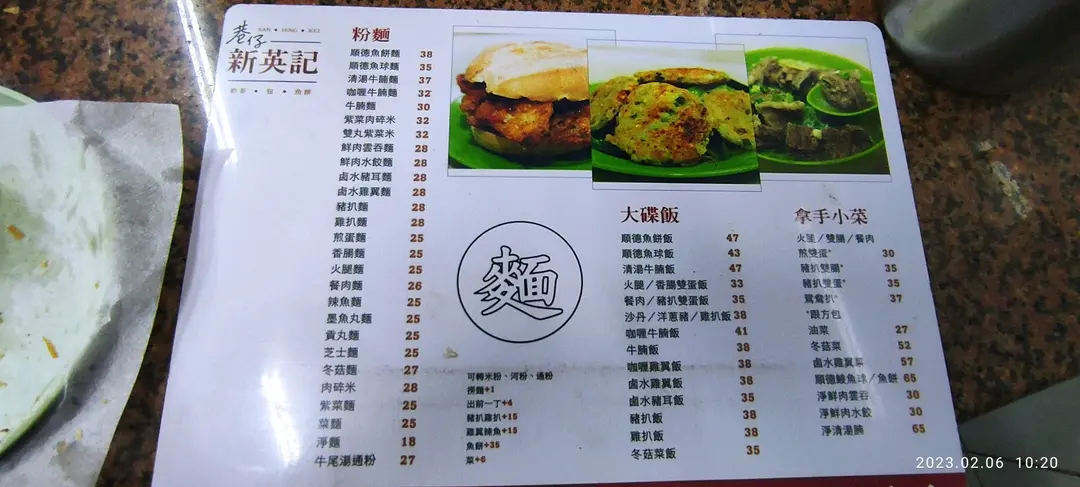 巷仔
SAN • YING • KEI
新英記
粉麵
順德魚餅麵 38
順德魚球麵 35
清湯牛腩麵 37
咖喱牛腩麵 32
牛腩麵 30
紫菜肉碎米 32
雙丸紫菜米 32
鮮肉雲吞麵 28
鮮肉水餃麵 28
鹵水豬耳麵 28
鹵水雞翼麵 28
豬扒麵 28
雞扒麵 28
煎蛋麵 25
香腸麵 25
火腿麵 25
餐肉麵 26
辣魚麵 25
墨魚丸麵 25
貢丸麵 25
芝士麵 25
冬菇麵 27
肉碎米 28
紫菜麵 25
菜麵 25
淨麵 18
牛尾湯通粉 27
麵
可轉米粉、河粉、通粉
撈麵+1
出前一丁+4
豬扒雞扒+15
雞翼辣魚+15
魚餅+35
菜+6
大碟飯
順德魚餅飯 47
順德魚球飯 43
清湯牛腩飯 47
火腿/香腸雙蛋飯 33
餐肉/豬扒雙蛋飯 35
沙丹/洋蔥豬/雞扒飯 38
咖喱牛腩飯 41
牛腩飯 38
咖喱雞翼飯 38
鹵水雞翼飯 38
鹵水豬耳飯 35
豬扒飯 38
雞扒飯 38
冬菇菜飯 35
拿手小菜
火腿/雙腸/餐肉
煎雙蛋* 30
豬扒雙腸* 35
豬扒雙蛋* 35
鴛鴦扒* 37
*跟方包
油菜 27
冬菇菜 52
鹵水雞翼菜 57
順德鯪魚球/魚餅 65
淨鮮肉雲吞 30
淨鮮肉水餃 30
淨清湯腩 65
2023.02.06 10:20